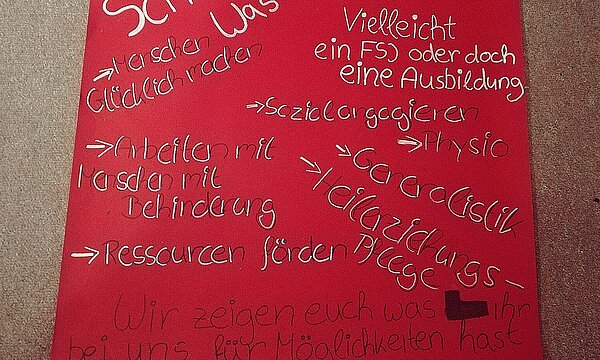 Was
Vielleicht
ein FSJ oder doch
eine Ausbildung
→Menschen
Glücklich machen
→Sozialorgagieren
→Physio
→Arbeiten mit
Menschen mit
Behinderung
→Generalistik
→Heilerziehungs-
Pflege
→Ressourcen förden
Wir zeigen euch was ihr
bei uns für Möglichkeiten hast